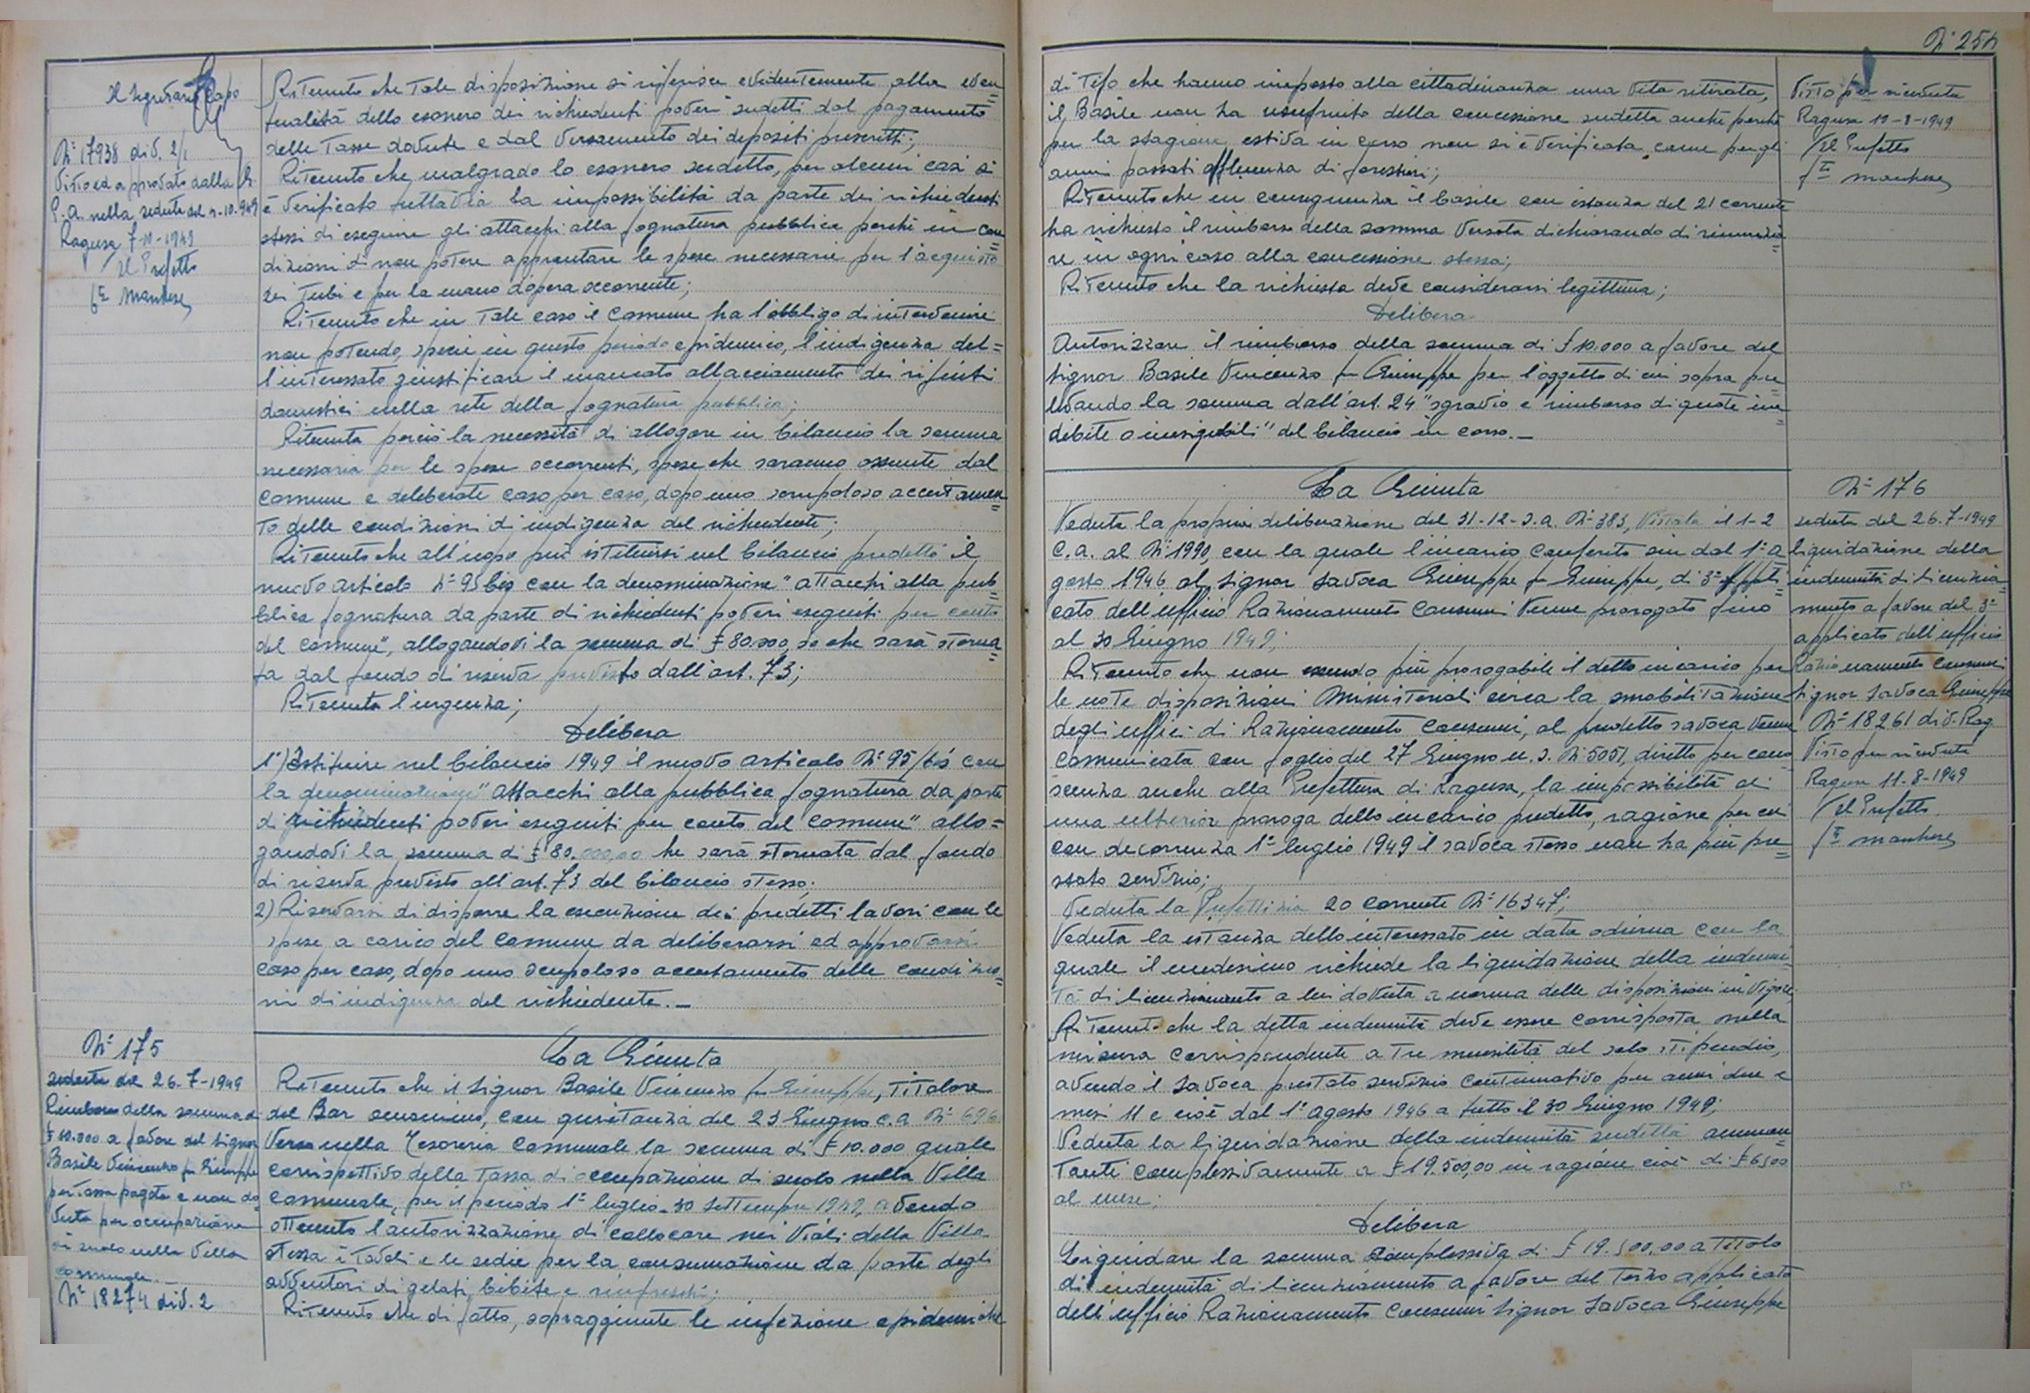 Il Segretario Capo
N° 17938 div. 2/1
Visto ed approvato dalla
G.P.A. nella seduta del 4-10-949
Ragusa 7-10-1949
Il Prefetto
Ritenuto che tale disposizione si riferisce evidentemente alla even=
tualità dello esonero dei richiedenti poveri sudetti dal pagamento
delle tasse dovute e dal versamento dei depositi prescritti;
Ritenuto che malgrado lo esonero sudetto, per alcuni casi si
è verificato tuttavia la impossibilità da parte dei richiedenti
stessi di eseguire gli attacchi alla fognatura pubblica perchè in con
dizioni di non potere approntare le spese necessarie per l'acquisto
dei tubi e per la mano d'opera occorrente;
Ritenuto che in tale caso il Comune ha l'obbligo di intervenire
non potendo, specie in questo periodo epidemico, l'indigenza del=
l'interessato giustificare il mancato allacciamento dei rifiuti
domestici nella rete della fognatura pubblica;
Ritenuta perciò la necessità di allogare in bilancio la somma
necessaria per le spese occorrenti, spese che saranno assunte dal
Comune e deliberate caso per caso, dopo uno scrupoloso accertamen
to delle condizioni di indigenza del richiedente;
Ritenuto che all'uopo può istituirsi nel bilancio predetto il
nuovo articolo N° 95 bis con la denominazione "attacchi alla pub
blica fognatura da parte di richiedenti poveri eseguiti per conto
del Comune", allogandovi la somma di £ 80.000,00 che sarà storna=
ta dal fondo di riserva previsto dall'art. 73;
Ritenuta l'urgenza;
Delibera
1°) Istituire nel bilancio 1949 il nuovo articolo N° 95/bis con
la denominazione "Attacchi alla pubblica fognatura da parte
di richiedenti poveri eseguiti per conto del Comune" allo=
gandovi la somma di £ 80.000,00 che sarà stornata dal fondo
di riserva previsto all'art. 73 del bilancio stesso;
2) Riservarsi di disporre la esecuzione dei predetti lavori con le
spese a carico del Comune da deliberarsi ed approvarsi
caso per caso, dopo uno scrupoloso accertamento delle condizio=
ni di indigenza del richiedente._
N° 175
seduta del 26-7-1949
Rimborso della somma di
£ 10.000 a favore del Signor
Basile Vincenzo fu Giuseppe
per tassa pagata e non do
vuta per occupazione
di suolo nella Villa
comunale._
N° 18274 div. 2
La Giunta
Ritenuto che il Signor Basile Vincenzo fu Giuseppe, titolare
del Bar omonimo, con quietanza del 23 Giugno c.a. N° 696
versa nella Tesoreria Comunale la somma di £ 10.000 quale
corrispettivo della tassa di occupazione di suolo nella Villa
Comunale, per il periodo 1° luglio - 30 settembre 1949, avendo
ottenuto l'autorizzazione di collocare nei Viali della Villa
stessa i tavoli e le sedie per la consumazione da parte degli
avventori di gelati, bibite e rinfreschi;
Ritenuto che di fatto, sopraggiunte le infezione epidemiche
N° 254
di Tifo che hanno imposto alla cittadinanza una vita ritirata,
il Basile non ha usufruito della concessione sudetta anche perchè
per la stagione estiva in corso non si è verificata, come per gli
anni passati affluenza di forestieri;
Ritenuto che in conseguenza il Basile con istanza del 21 corrente
ha richiesto il rimborso della somma versata dichiarando di rinunzia=
re in ogni caso alla concessione stessa;
Ritenuto che la richiesta deve considerarsi legittima;
Delibera
Autorizzare il rimborso della somma di £ 10.000 a favore del
Signor Basile Vincenzo fu Giuseppe per l'oggetto di cui sopra pre=
levando la somma dall'art. 24 "sgravio e rimborso di quote in=
debite o inesigibili" del bilancio in corso._
Visto per ricevuta
Ragusa 19-8-1949
Il Prefetto
La Giunta
Veduta la propria deliberazione del 31-12-s.a. N° 383, Vistata il 1-2
c.a. al N° 1990, con la quale l'incarico conferito sin dal 1° a
gosto 1946 al Signor Savoca Giuseppe fu Giuseppe, di 3° appli
cato dell'ufficio Razionamento Consumi venne prorogato fino
al 30 Giugno 1949;
Ritenuto che non essendo più prorogabile il detto incarico per
le note disposizioni Ministeriali circa la smobilitazione
degli uffici di Razionamento Consumi, al predetto Savoca venne
comunicata con foglio del 27 Giugno u.s. N° 5051, diretto per cono=
scenza anche alla Prefettura di Ragusa, la impossibilità di
una ulterior proroga dello incarico predetto, ragione per cui
con decorrenza 1° luglio 1949 il Savoca stesso non ha più pre=
stato servizio;
Veduta la Prefettizia 20 corrente N° 16347;
Veduta la istanza dello interessato in data odierna con la
quale il medesimo richiede la liquidazione della indenni=
tà di licenziamento a lui dovuta a norma delle disposizioni in vigore;
Ritenuto che la detta indennità deve essere corrisposta nella
misura corrispondente a tre mensilità del solo stipendio,
avendo il Savoca prestato servizio continuativo per anni due e
mesi 11 e cioè dal 1° agosto 1946 a tutto il 30 Giugno 1949;
Veduta la liquidazione della indennità sudetta ammon=
tante complessivamente a £ 19.500,00 in ragione cioè di £ 6500
al mese;
Delibera
Liquidare la somma complessiva di £ 19.500,00 a titolo
di indennità di licenziamento a favore del terzo applicato
dell'ufficio Razionamento Consumi Signor Savoca Giuseppe
N° 176
seduta del 26-7-1949
liquidazione della
indennità di licenzia=
mento a favore del 3°
applicato dell'ufficio
Razionamento Consumi
Signor Savoca Giuseppe
N° 18261 div. Rag.
Visto per ricevuta
Ragusa 11-8-1949
Il Prefetto